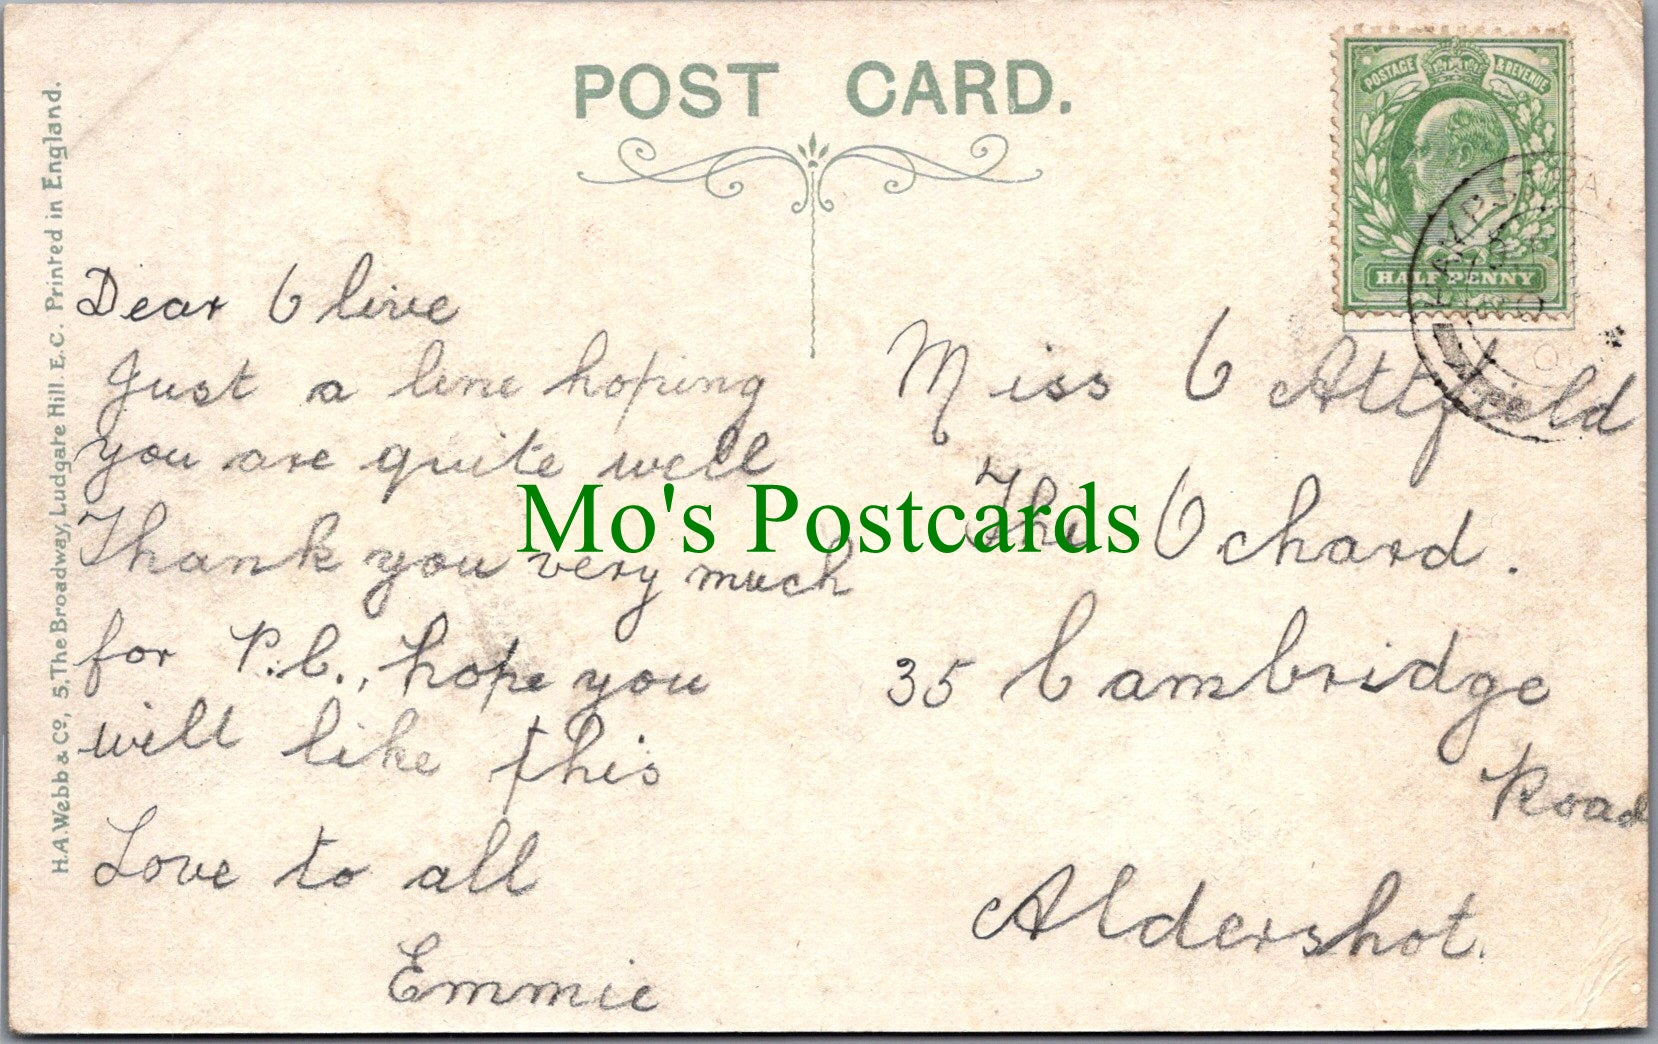 POST CARD.
POSTAGE & REVENUE
HALF PENNY
H.A. Webb & Co., 5, The Broadway, Ludgate Hill. E.C. Printed in England.
Dear Olive
Just a line hoping
you are quite well
Thank you very much
for P.C., hope you
will like this
Love to all
Emmie
Miss O Attfield
The Ochard.
35 Cambridge
Road
Aldershot.
Mo's Postcards